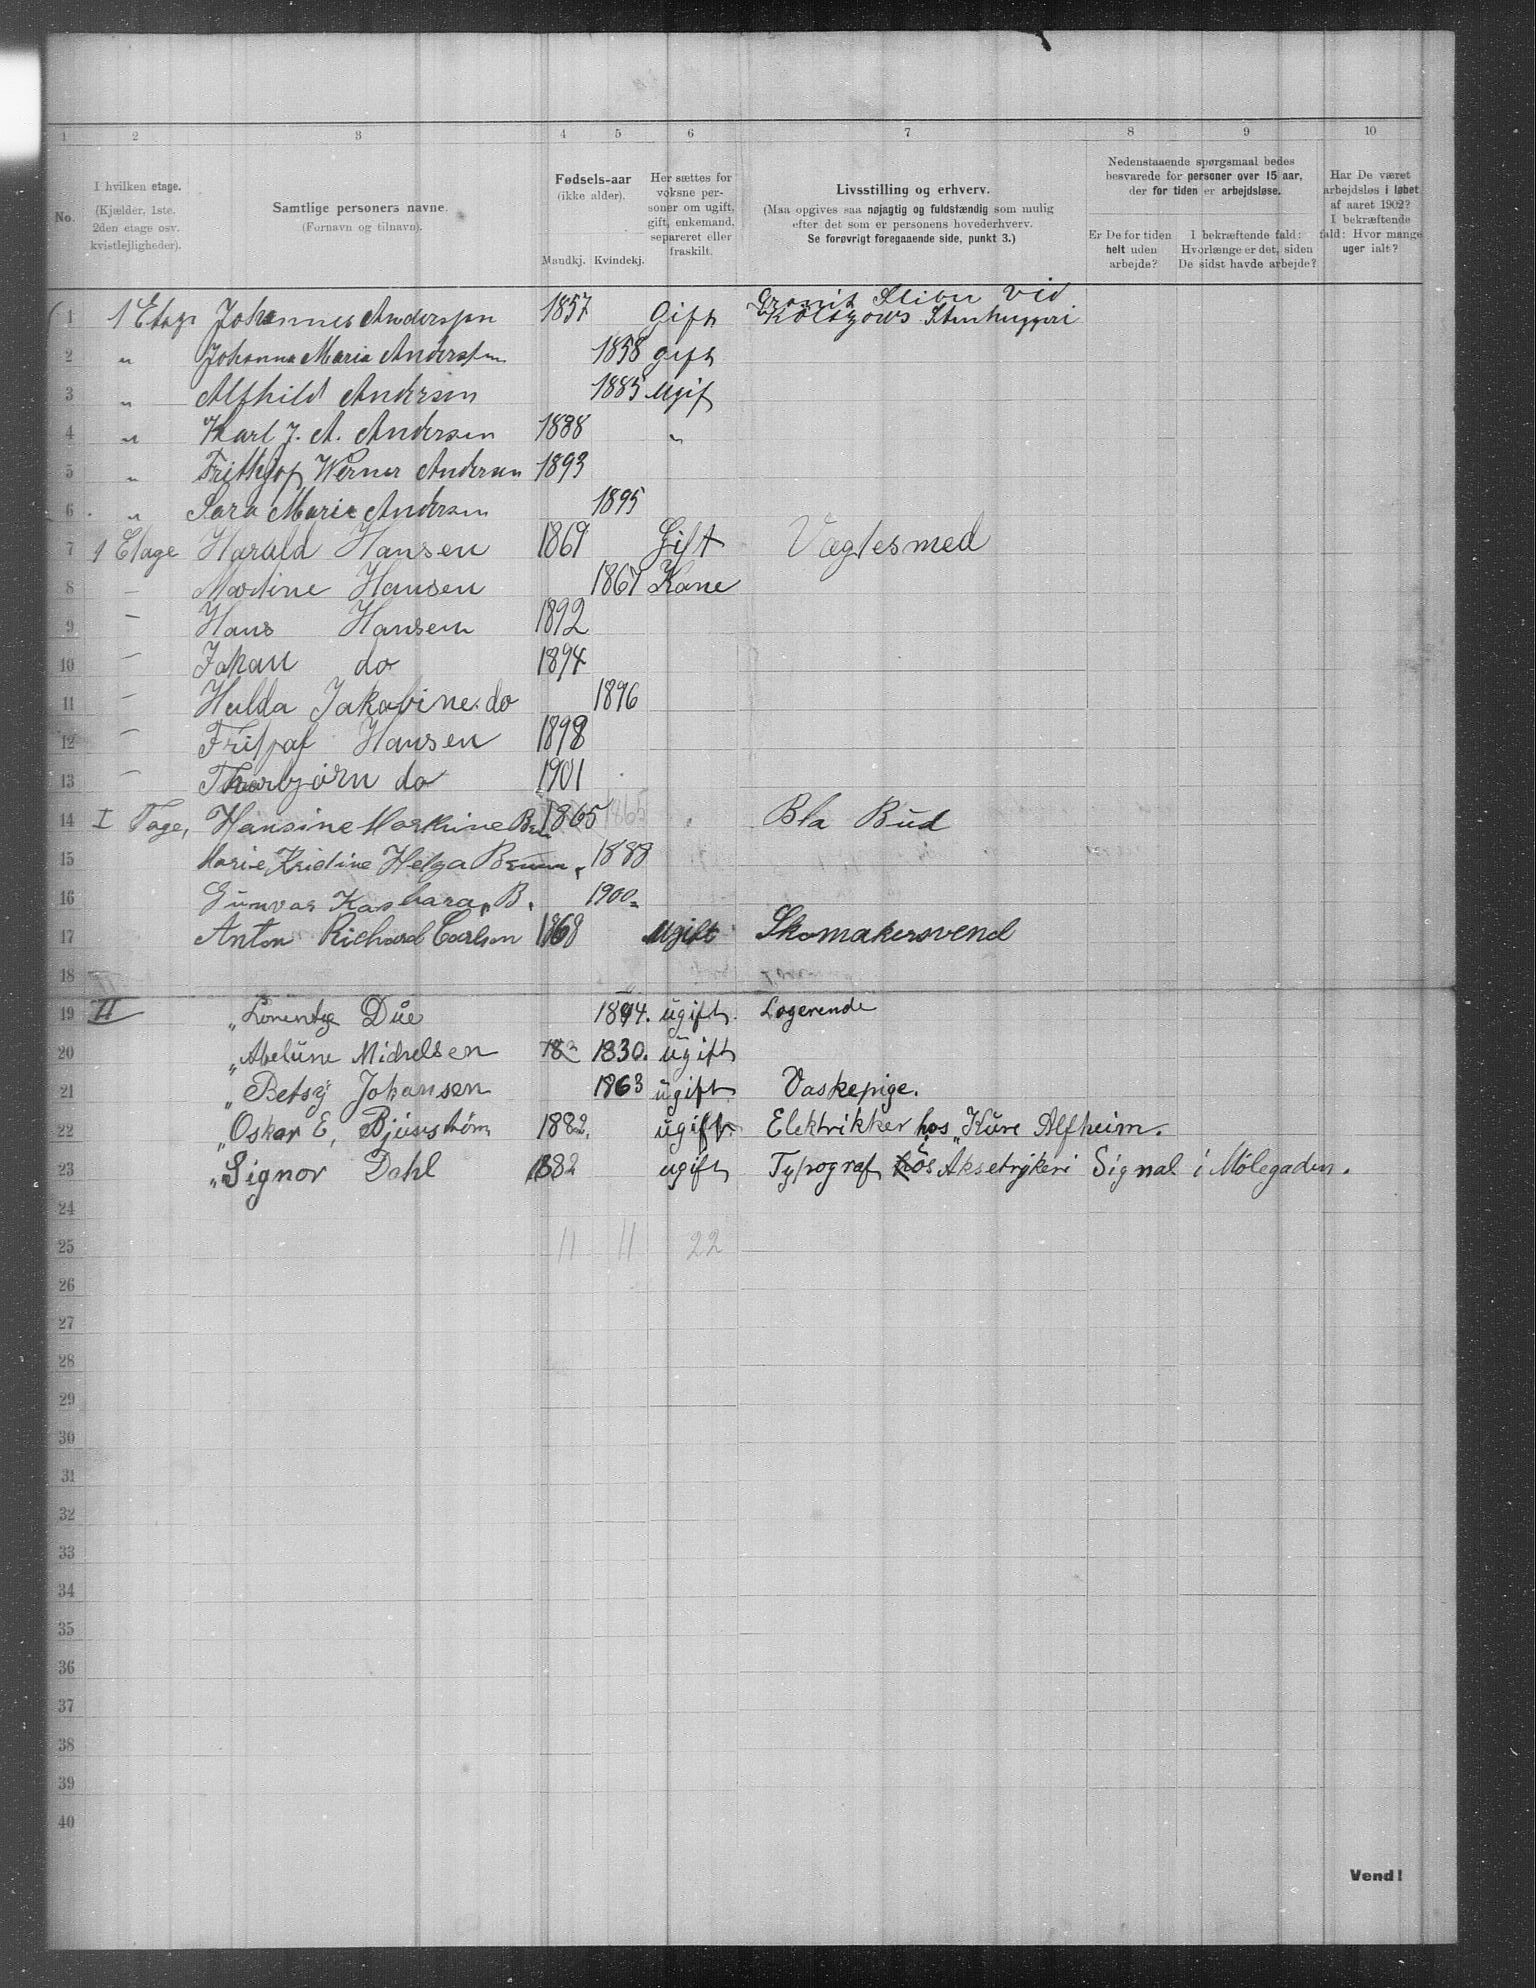 1 2 3 4 5 6 7 8 9 10
No.
I hvilken etage.
(Kjælder, 1ste.
2den etage osv.
kvistlejligheder).
Samtlige personers navne.
(Fornavn og tilnavn).
Fødsels-aar
(ikke alder).
Mandkj. Kvindekj.
Her sættes for
voksne per-
soner om ugift,
gift, enkemand,
separeret eller
fraskilt.
Livsstilling og erhverv.
(Maa opgives saa nøjagtig og fuldstændig som mulig
efter det som er personens hovederhverv.
Se forøvrigt foregaaende side, punkt 3.)
Nedenstaaende spørgsmaal bedes
besvarede for personer over 15 aar,
der for tiden er arbejdsløse.
Er De for tiden
helt uden
arbejde?
I bekræftende fald:
Hvorlænge er det, siden
De sidst havde arbejde?
Har De været
arbejdsløs i løbet
af aaret 1902?
I bekræftende
fald: Hvor mange
uger ialt?
1 1 Etage Johannes Anderssen 1857 Gift Granit Sliber Ved
Stenhuggeri
2 " Johanna Maria Anderssen 1858 gift
3 " Alfhild Andersen 1885 Ugif
4 " Karl J. A. Andersen 1888 "
5 " Frithjof Werner Andersen 1893
6 " Sara Marie Andersen 1895
7 1 Etage Harald Hansen 1869 Gift Vægtesmed
8 - Martine Hansen 1867 Kone
9 - Hans Hansen 1892
10 - Johan do 1894
11 - Hulda Jakobine do 1896
12 - Hansen 1898
13 - Thorbjørn do 1901
14 I Tage, Hansine 1865 1865 Bla Bud
15 Marie Kristine Helga 1888
16 Gunvor B. 1900
17 Anton Richard Carlsen 1868 Ugift Skomakersvend
18
19 II " Due 1894. ugift. Logerende
20 " Michelsen 1830. ugift
21 " Betsy Johansen 1863 ugift Vaskepige.
22 " Oskar E, 1882. ugift Elektrikker hos "Kure Alfheim.
23 " Signor Dahl 1882 ugift Typograf hos Aksetrykeri Signal i Mølegaden.
24
25 11 11 22
26
27
28
29
30
31
32
33
34
35
36
37
38
39
40
Vend!